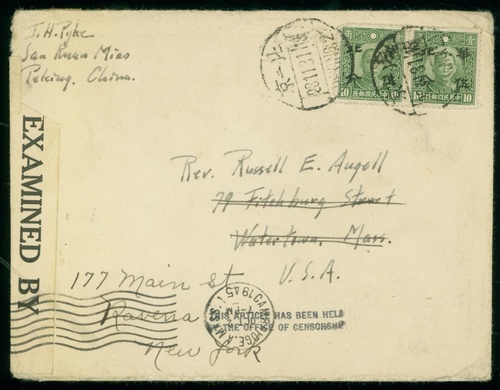 J. H. Pyke
San Kuan Miao
Peking, China.
EXAMINED BY
Rev. Russell E. Angell
79 Fitchburg Street
Watertown, Mass.
U. S. A.
177 Main St
Ravena
New York
THIS ARTICLE HAS BEEN HELD
THE OFFICE OF CENSORSHIP
CAMBRIDGE
1945
10
10